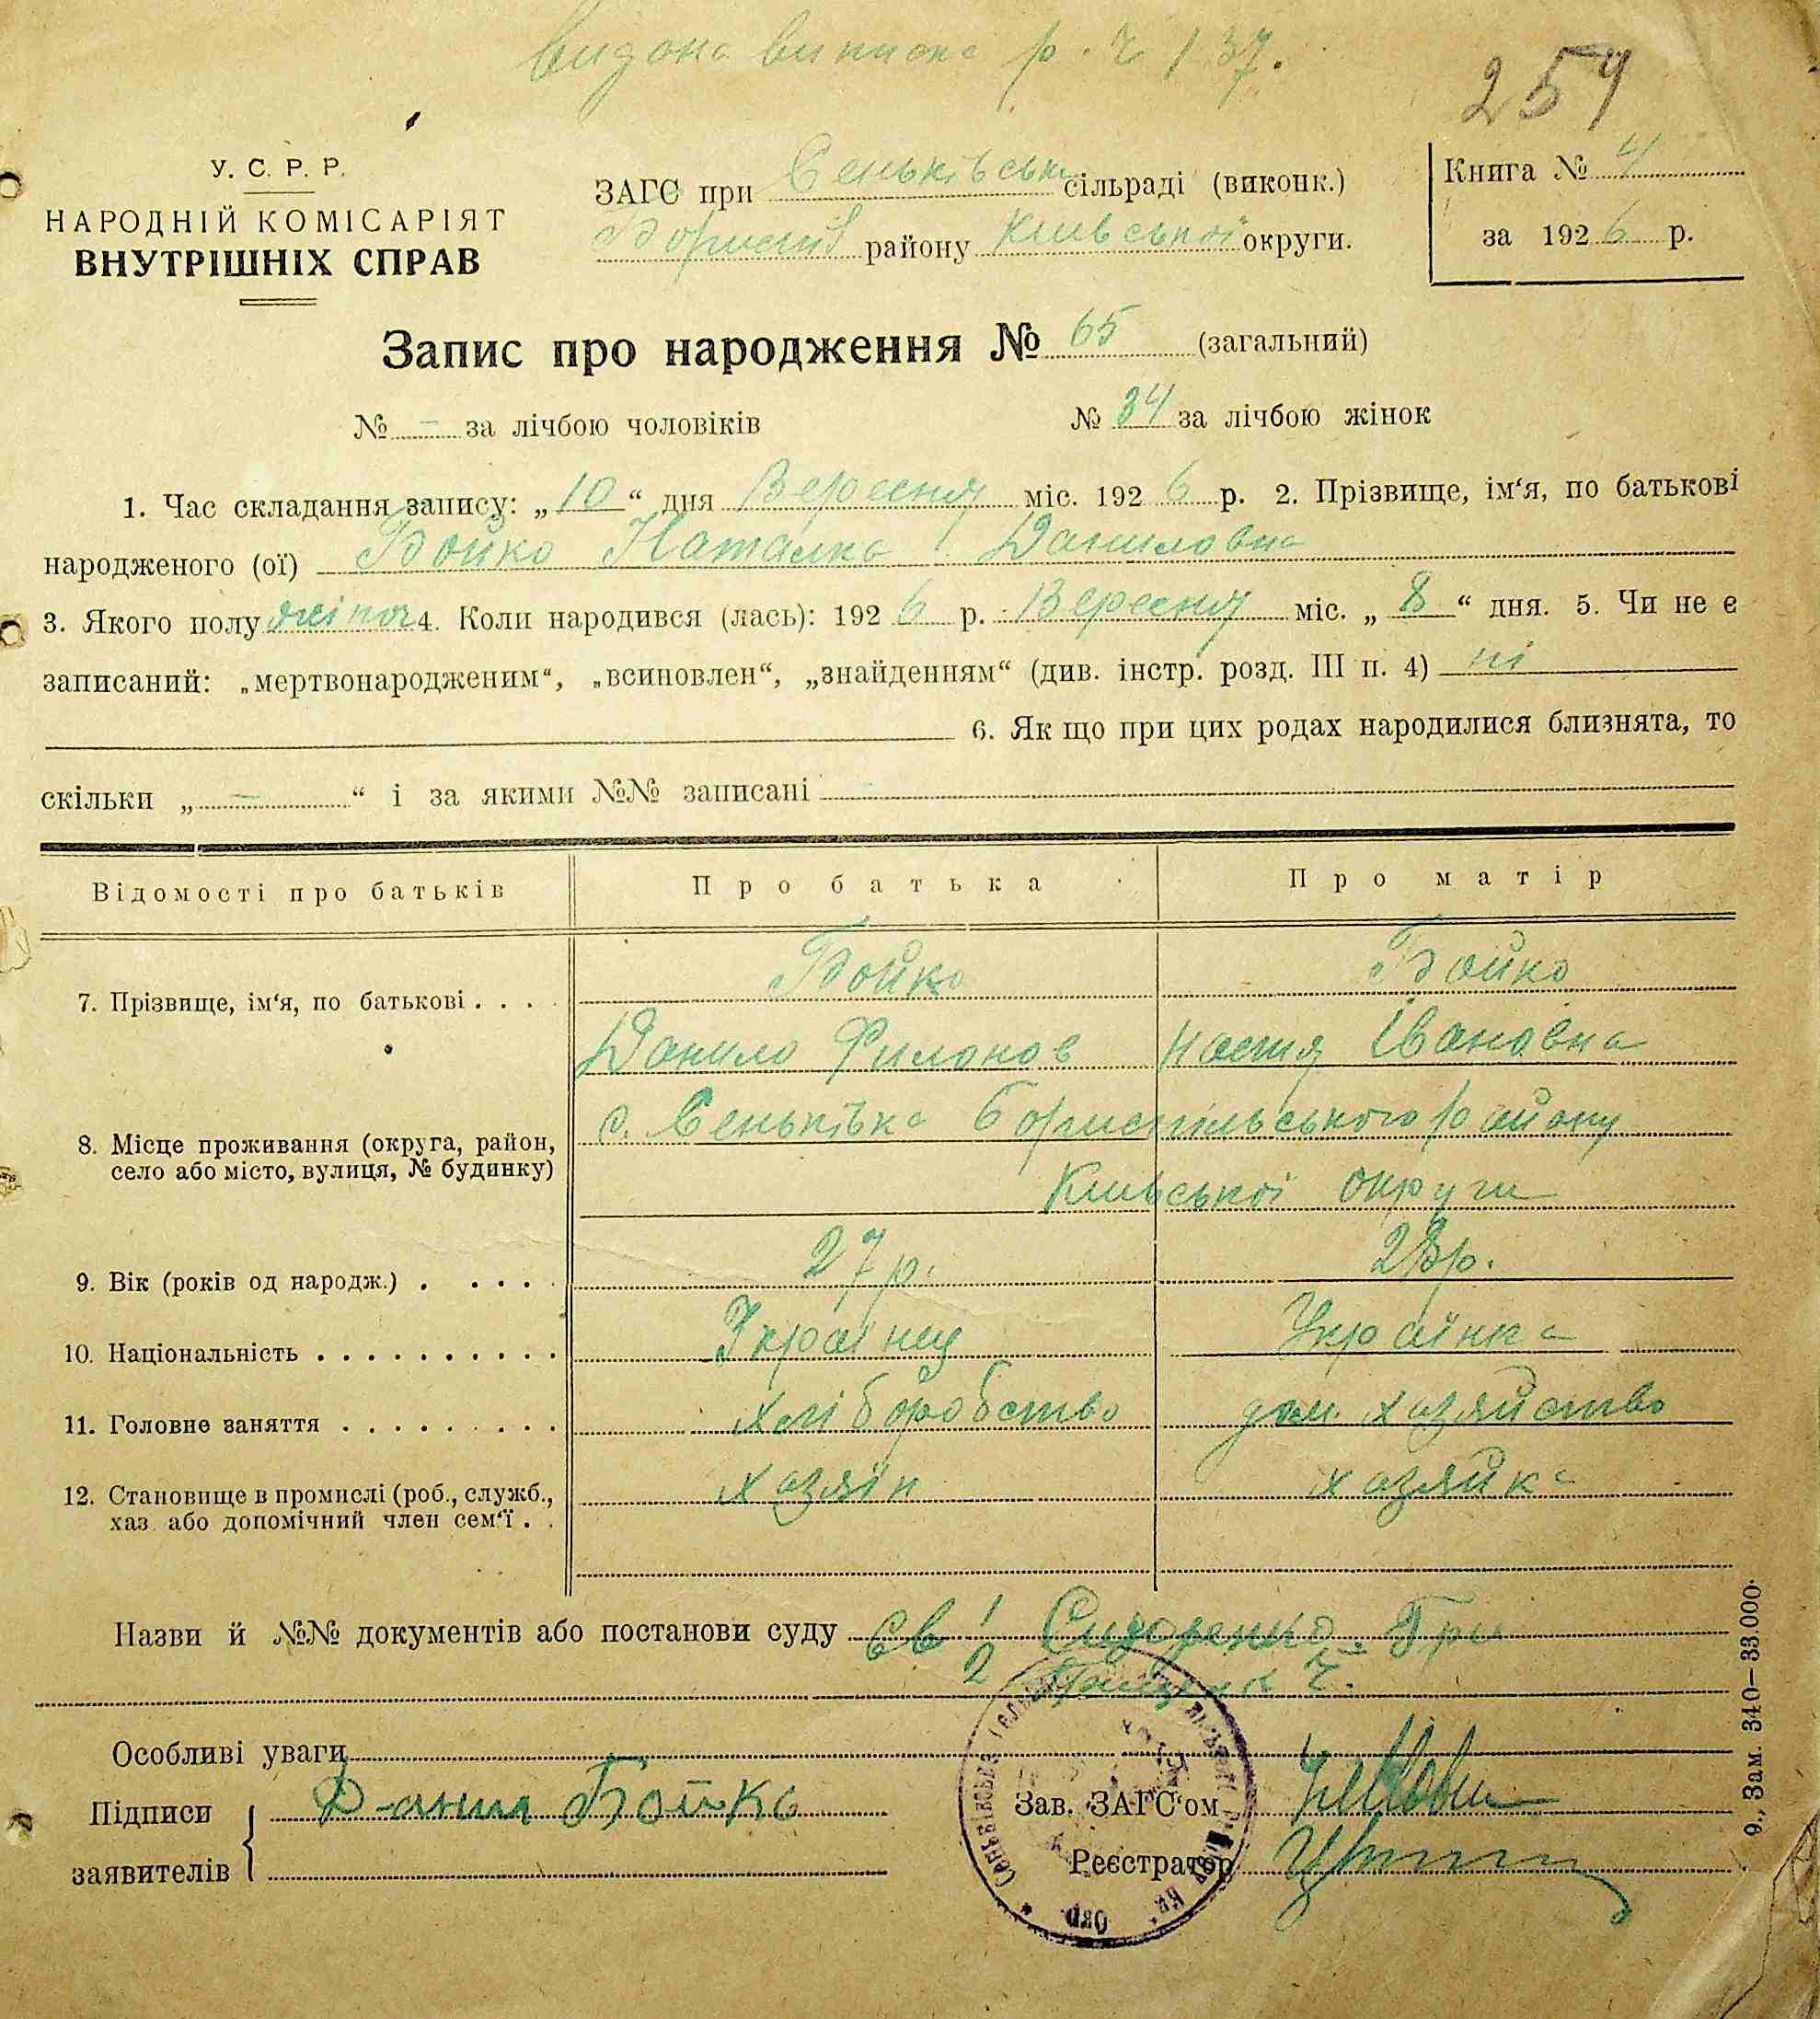 видона виписка р. 2 137.
257
У. С. Р. Р.
НАРОДНІЙ КОМІСАРІЯТ
ВНУТРІШНІХ СПРАВ
ЗАГС при Сеньківськ сільраді (виконк.)
Борисп району Київської округи.
Книга № 4
за 1926 р.
Запис про народження № 65 (загальний)
№ - за лічбою чоловіків № 34 за лічбою жінок
1. Час складання запису: „10“ дня Вересня міс. 1926 р. 2. Прізвище, ім‘я, по батькові
народженого (ої) Бойко Наталка Даниловна
3. Якого полу жіноч 4. Коли народився (лась): 1926 р. Вересня міс. „8“ дня. 5. Чи не є
записаний: „мертвонародженим“, „всиновлен“, „знайденням“ (див. інстр. розд. III п. 4) ні
6. Як що при цих родах народилися близнята, то
скільки „ - “ і за якими №№ записані -
Відомості про батьків Про батька Про матір
7. Прізвище, ім‘я, по батькові . . . . Бойко Бойко
Данило Филонов Настя Івановна
8. Місце проживання (округа, район, село або місто, вулиця, № будинку) с. Сеньківка Бориспільського району
Київської округи
9. Вік (років од народж.) . . . . . 27 р. 28 р.
10. Національність . . . . . . . . . . Українец Українка
11. Головне заняття . . . . . . . . . хліборобство дом. хазяйство
12. Становище в промислі (роб., служб., хаз. або допомічний член сем‘ї . . хазяїн хазяйка
Назви й №№ документів або постанови суду Св 1 Сидоренко Гри
2
Особливі уваги
Підписи Данил Бойко Зав. ЗАГС‘ом
заявителів Реєстратор
9., Зам. 340—33.000.